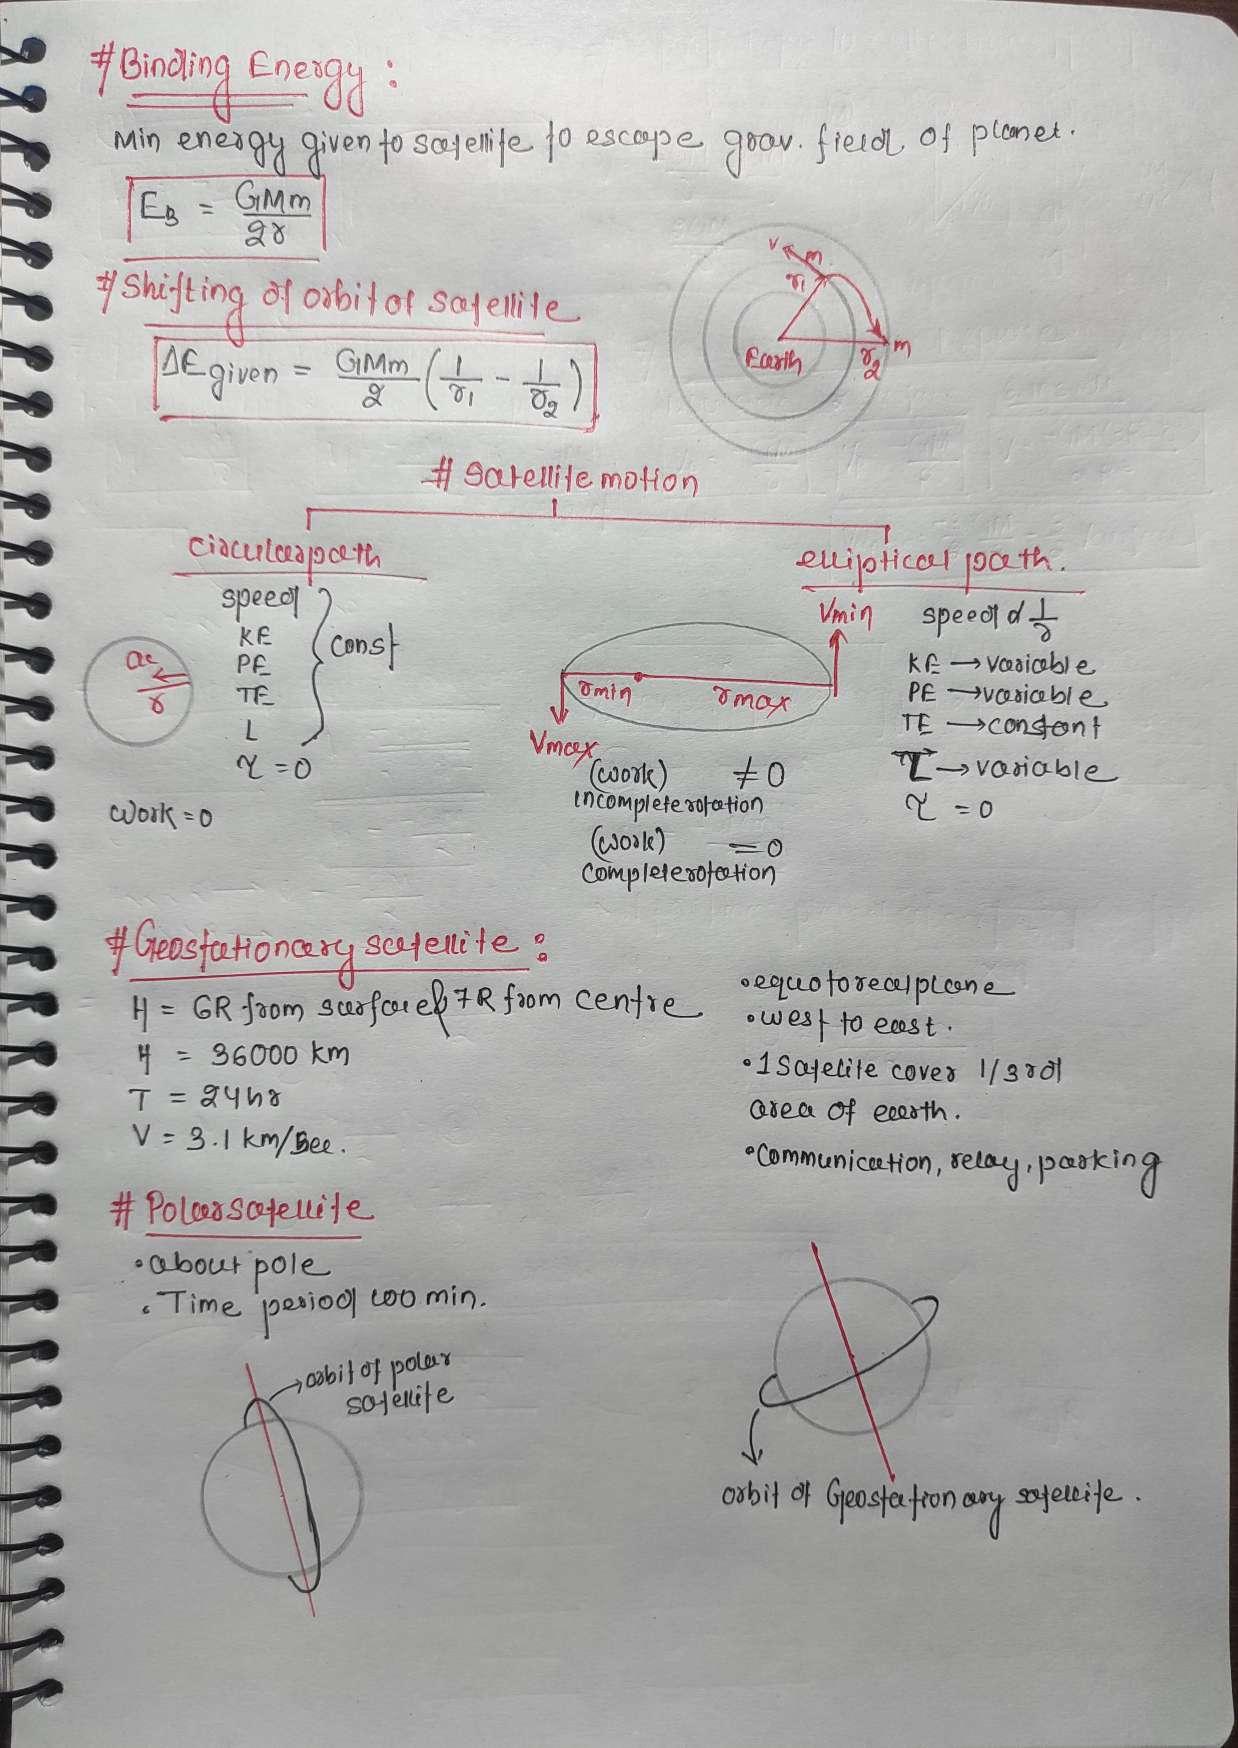 # Binding Energy :
Min energy given to satellite to escape grav. field of planet.
E_B = GMm/2r
# Shifting of orbit of satellite
ΔE given = GMm/2 (1/r₁ - 1/r₂)
v m
r₁
Earth r₂ m
# Satellite motion
circular path
speed
KE
PE
TE
L
} const
τ = 0
ac
r
work = 0
elliptical path.
Vmin
rmin rmax
Vmax
(work) ≠ 0
incomplete rotation
(work) = 0
complete rotation
speed α 1/r
KE → variable
PE → variable
TE → constant
→ variable
τ = 0
# Geostationary satellite :
H = 6R from surface & 7R from centre
H = 36000 km
T = 24hr
V = 3.1 km/sec.
• equotoreal plane
• west to east.
• 1 Satelite cover 1/3rd
area of earth.
• Communication, relay, parking
# Polar satellite
• about pole
• Time period 100 min.
orbit of polar
satellite
orbit of Geostationary satellite.